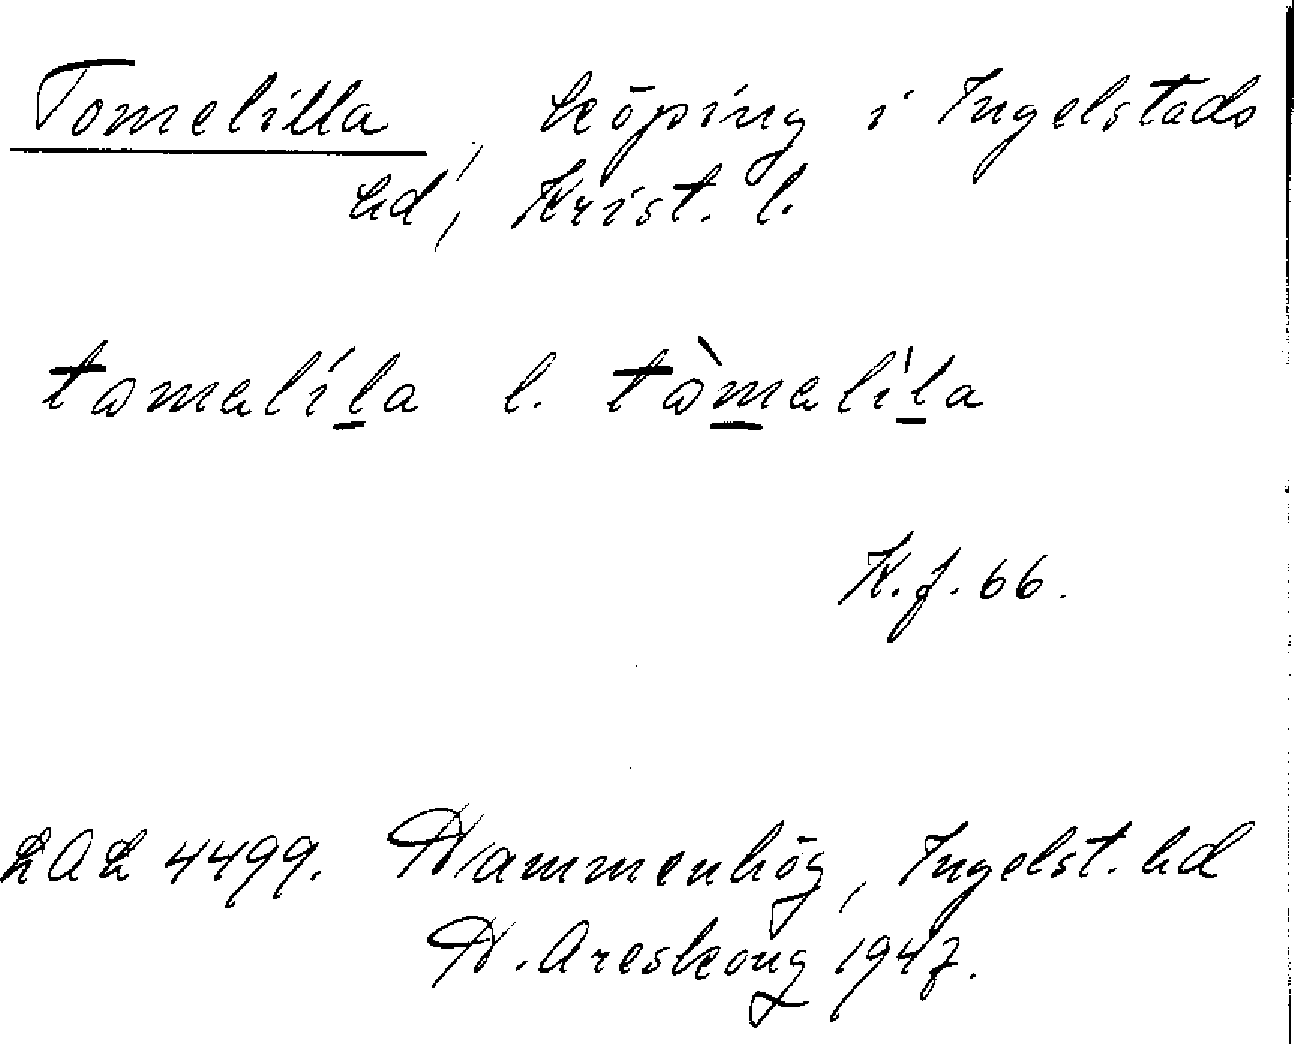 Tomelilla, köping i Ingelstads
hd, Krist. l.
tomalíla l. tòmalíla
K.f. 66.
LAL 4499. Hammenhög, Ingelst. hd
H. Areskoug 1947.